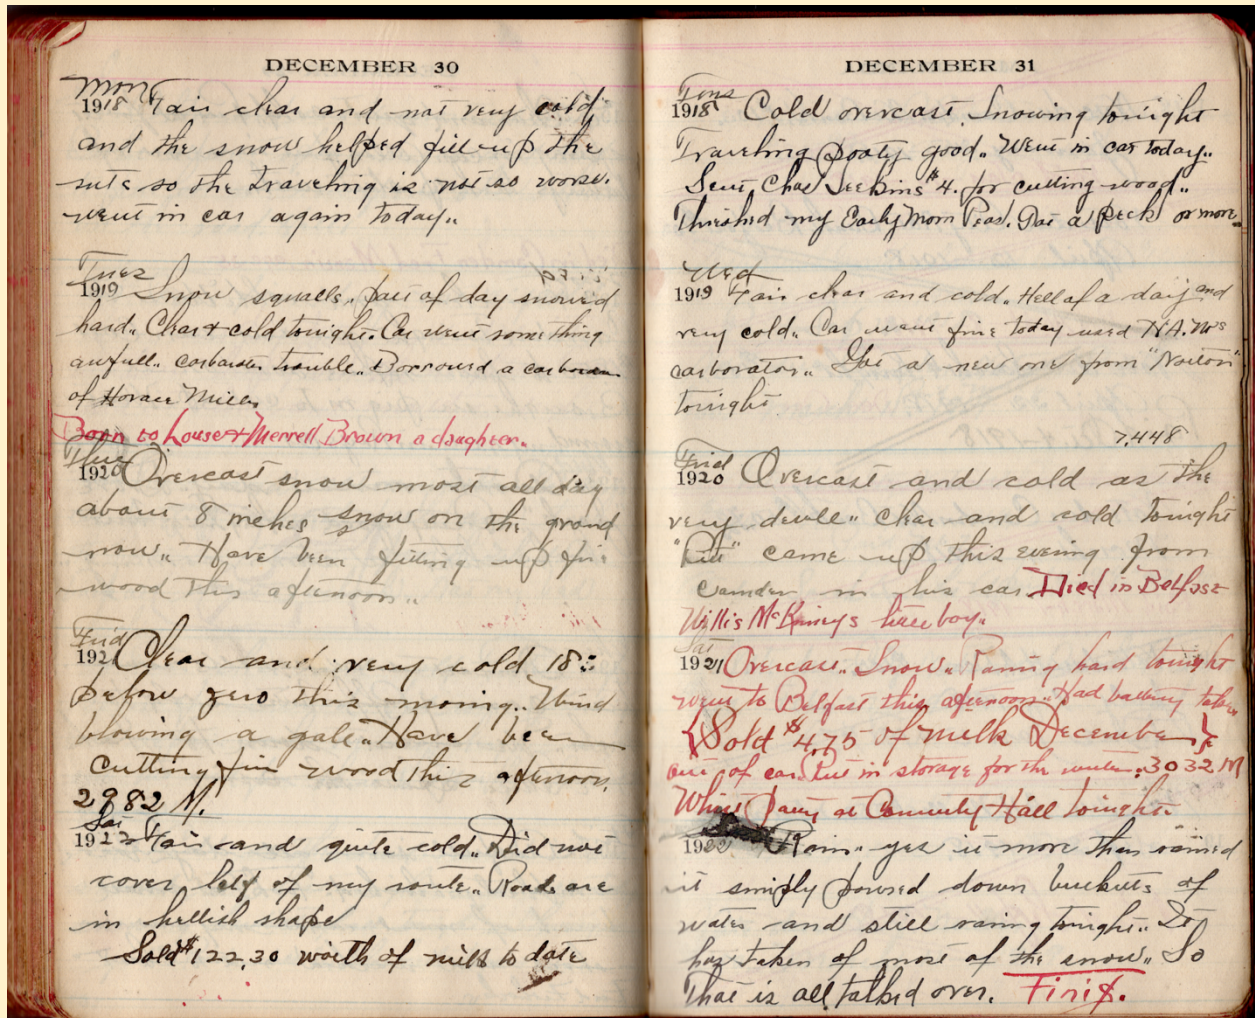 DECEMBER 30
Mon
1918 Fair clear and not very cold
and the snow helped fill up the
ruts so the traveling is not so worse.
went in car again today..
Tues
1919 Snow squalls.. part of day snowed
hard.. Clear & cold tonight. Car went something
awfull.. carborator trouble.. Borrowed a carborator
of Horace Miller
Born to Louse & Merrell Brown a daughter.
Thur
1920 Overcast snow most all day
about 8 inches snow on the grond
now.. Have been fitting up fire
wood this afternoon..
Frid
1921 Clear and very cold 18:
below zero this moring.. Wind
blowing a gale.. Have been
cutting fire wood this afternoon.
2982 M.
Sat
1922 Fair and quite cold.. Did not
cover half of my route.. Roads are
in hellish shape
Sold $122.30 worth of milk to date
DECEMBER 31
Tues
1918 Cold overcast. Snowing tonight
Traveling pooty good.. Went in car today..
Sent Chas Seekins $4. for cutting wood..
Thrished my Early Morn Peas. Got a peck or more.
Wed
1919 Fair clear and cold.. Hell of a day and
very cold.. Car went fine today used H.A. M's
carborator.. Got a new one from "Norton"
tonight.
7,448
Frid
1920 Overcast and cold as the
very deville.. Clear and cold tonight
came up this evening from
Camden in his car. Died in Belfast
Willis McKinneys little boy..
Sat
1921 Overcast.. Snow.. Raning hard tonight
went to Belfast this afternoon.. Had battery taken
{Sold $4.75 of milk December}
out of car. Put in storage for the winter. 3032 M
Whist Party at Comunity Hall tonight
1922 Rain.. yes it more than rained
it simply poured down buckets of
water and still raning tonight.. It
has taken of most of the snow.. So
That is all talked over. Finis.